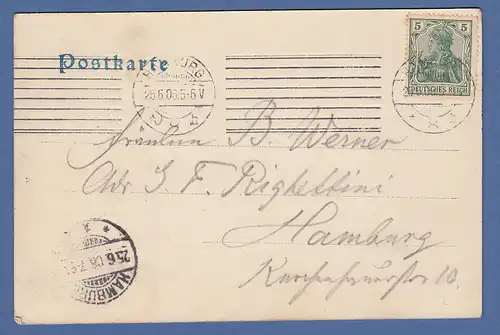 5
5
DEUTSCHES REICH
Postkarte
HAMBURG
25.6.08.5-6 V
Fräulein B. Werner
Adr J. F. Righettini
Hamburg
25.6.08.7
HAMBURG
10